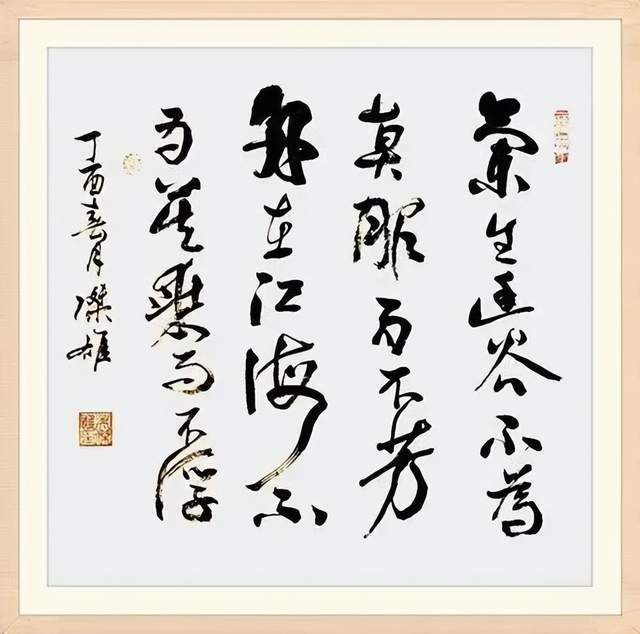 蘭生幽谷不為
莫服而不芳
舟在江海不
為莫乘而不浮
丁酉月雄